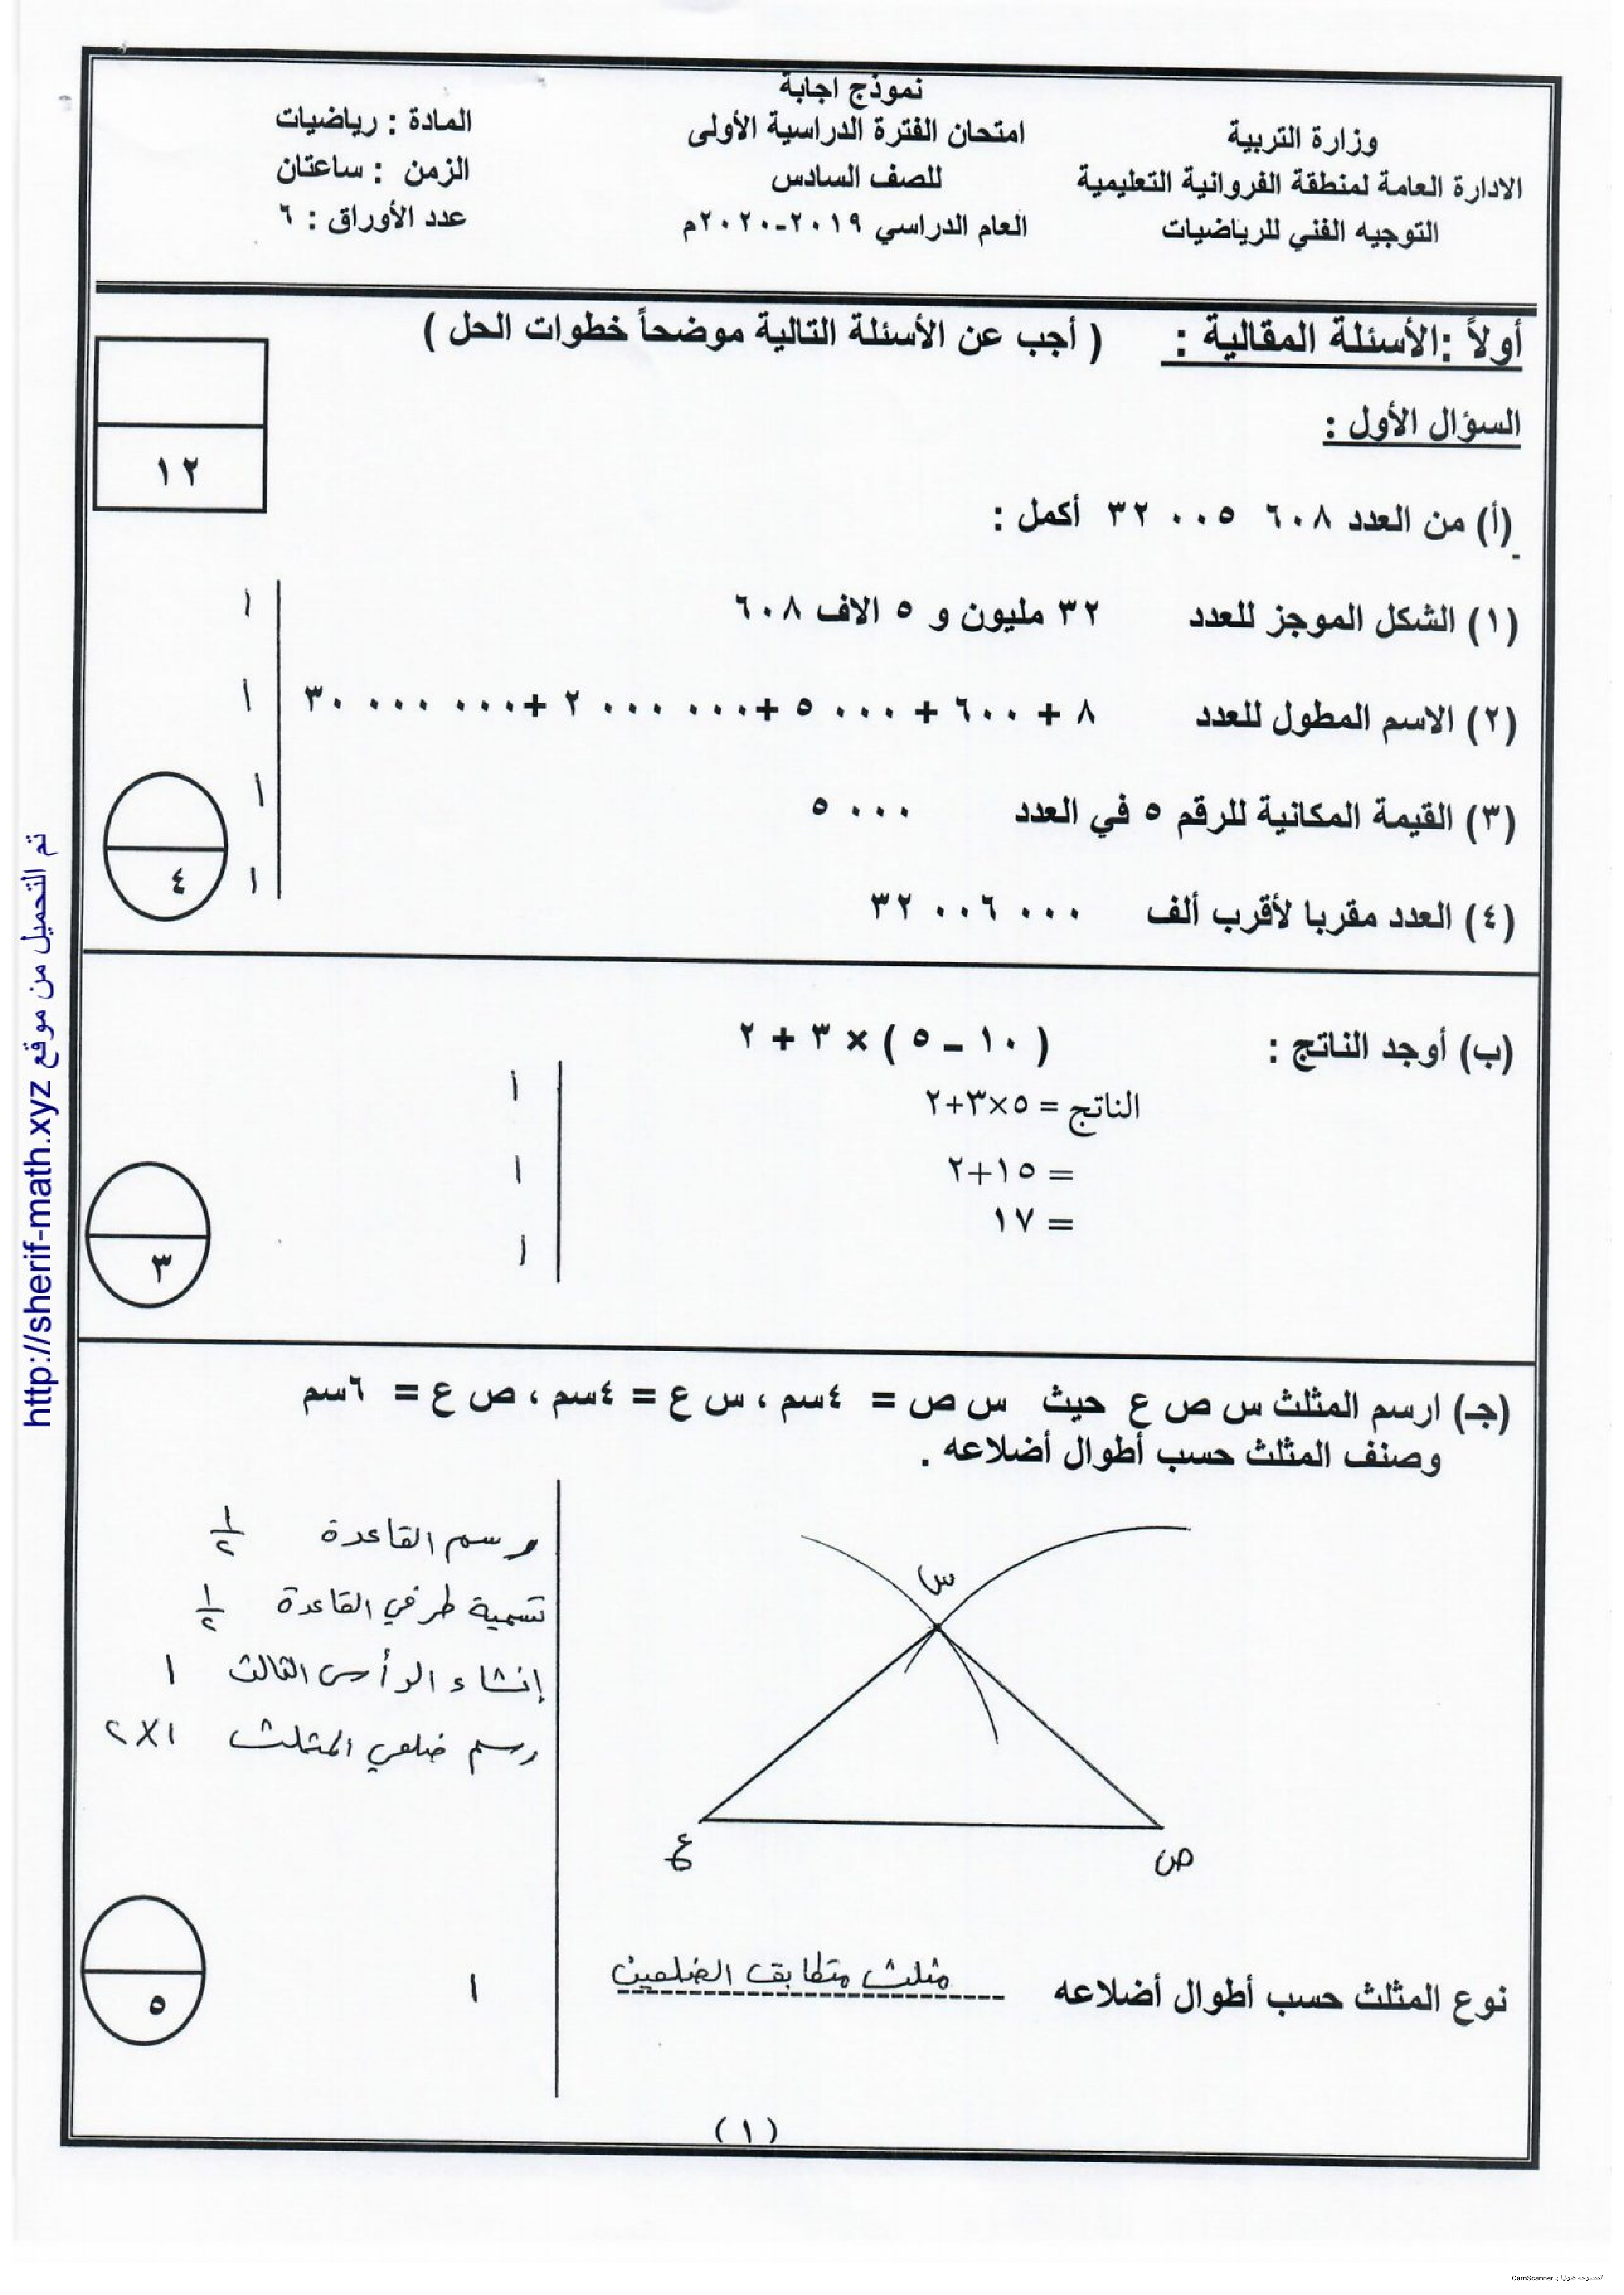 نموذج اجابة
وزارة التربية
الادارة العامة لمنطقة الفروانية التعليمية
التوجيه الفني للرياضيات
امتحان الفترة الدراسية الأولى
للصف السادس
العام الدراسي ٢٠١٩-٢٠٢٠م
المادة : رياضيات
الزمن : ساعتان
عدد الأوراق : ٦
أولاً :الأسئلة المقالية : ( أجب عن الأسئلة التالية موضحاً خطوات الحل )
السؤال الأول :
١٢
(أ) من العدد ٦٠٨ ٠٠٥ ٣٢ أكمل :
(١) الشكل الموجز للعدد ٣٢ مليون و ٥ الاف ٦٠٨
١
(٢) الاسم المطول للعدد ٨ + ٦٠٠ + ٠٠٠ ٥ +٠٠٠ ٠٠٠ ٢ +٠٠٠ ٠٠٠ ٣٠
١
(٣) القيمة المكانية للرقم ٥ في العدد ٠٠٠ ٥
١
(٤) العدد مقربا لأقرب ألف ٠٠٠ ٠٠٦ ٣٢
١
٤
(ب) أوجد الناتج : ( ١٠ – ٥ ) × ٣ + ٢
الناتج = ٥×٣+٢
١
= ١٥+٢
١
= ١٧
١
٣
(جـ) ارسم المثلث س ص ع حيث س ص = ٤سم ، س ع = ٤سم ، ص ع = ٦سم
وصنف المثلث حسب أطوال أضلاعه .
س
ع
ص
رسم القاعدة ١/٢
تسمية طرفي القاعدة ١/٢
إنشاء الرأس الثالث ١
رسم ضلعي المثلث ١×٢
نوع المثلث حسب أطوال أضلاعه مثلث متطابق الضلعين
١
٥
(١)
تم التحميل من موقع http://sherif-math.xyz
الممسوحة ضوئيا بـ CamScanner